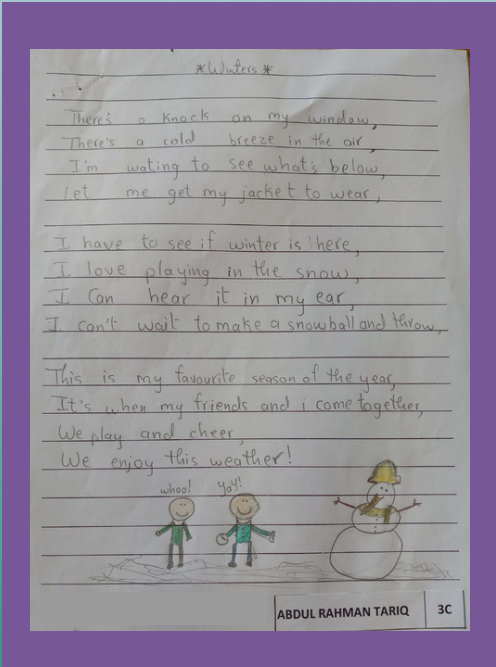 *Winters*
There's a knock on my window,
There's a cold breeze in the air,
I'm wating to see what's below,
Let me get my jacket to wear,
I have to see if winter is here,
I love playing in the snow,
I Can hear it in my ear,
I can't wait to make a snowball and throw,
This is my favourite season of the year,
It's when my friends and i come together,
We play and cheer,
We enjoy this weather!
whoo! yay!
ABDUL RAHMAN TARIQ 3C